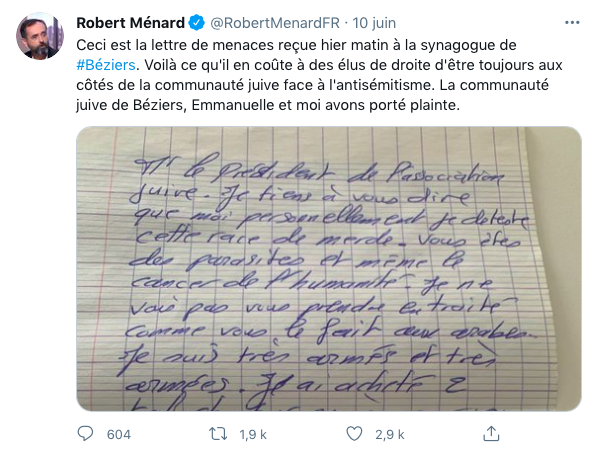 Robert Ménard @RobertMenardFR · 10 juin
Ceci est la lettre de menaces reçue hier matin à la synagogue de
#Béziers. Voilà ce qu'il en coûte à des élus de droite d'être toujours aux
côtés de la communauté juive face à l'antisémitisme. La communauté
juive de Béziers, Emmanuelle et moi avons porté plainte.
Mr le président de l'association
juive. Je tiens à vous dire
que moi personnellement je deteste
cette race de merde. Vous êtes
des parasites et même le
cancer de l'humanité. Je ne
vais pas vous prendre en traite
comme vous le fait aux arabes.
Je suis très armés et très
armées. J'ai acheté 2
604
1,9 k
2,9 k